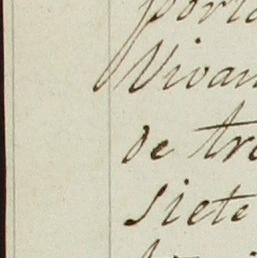 porta
Vivan
de tre
siete